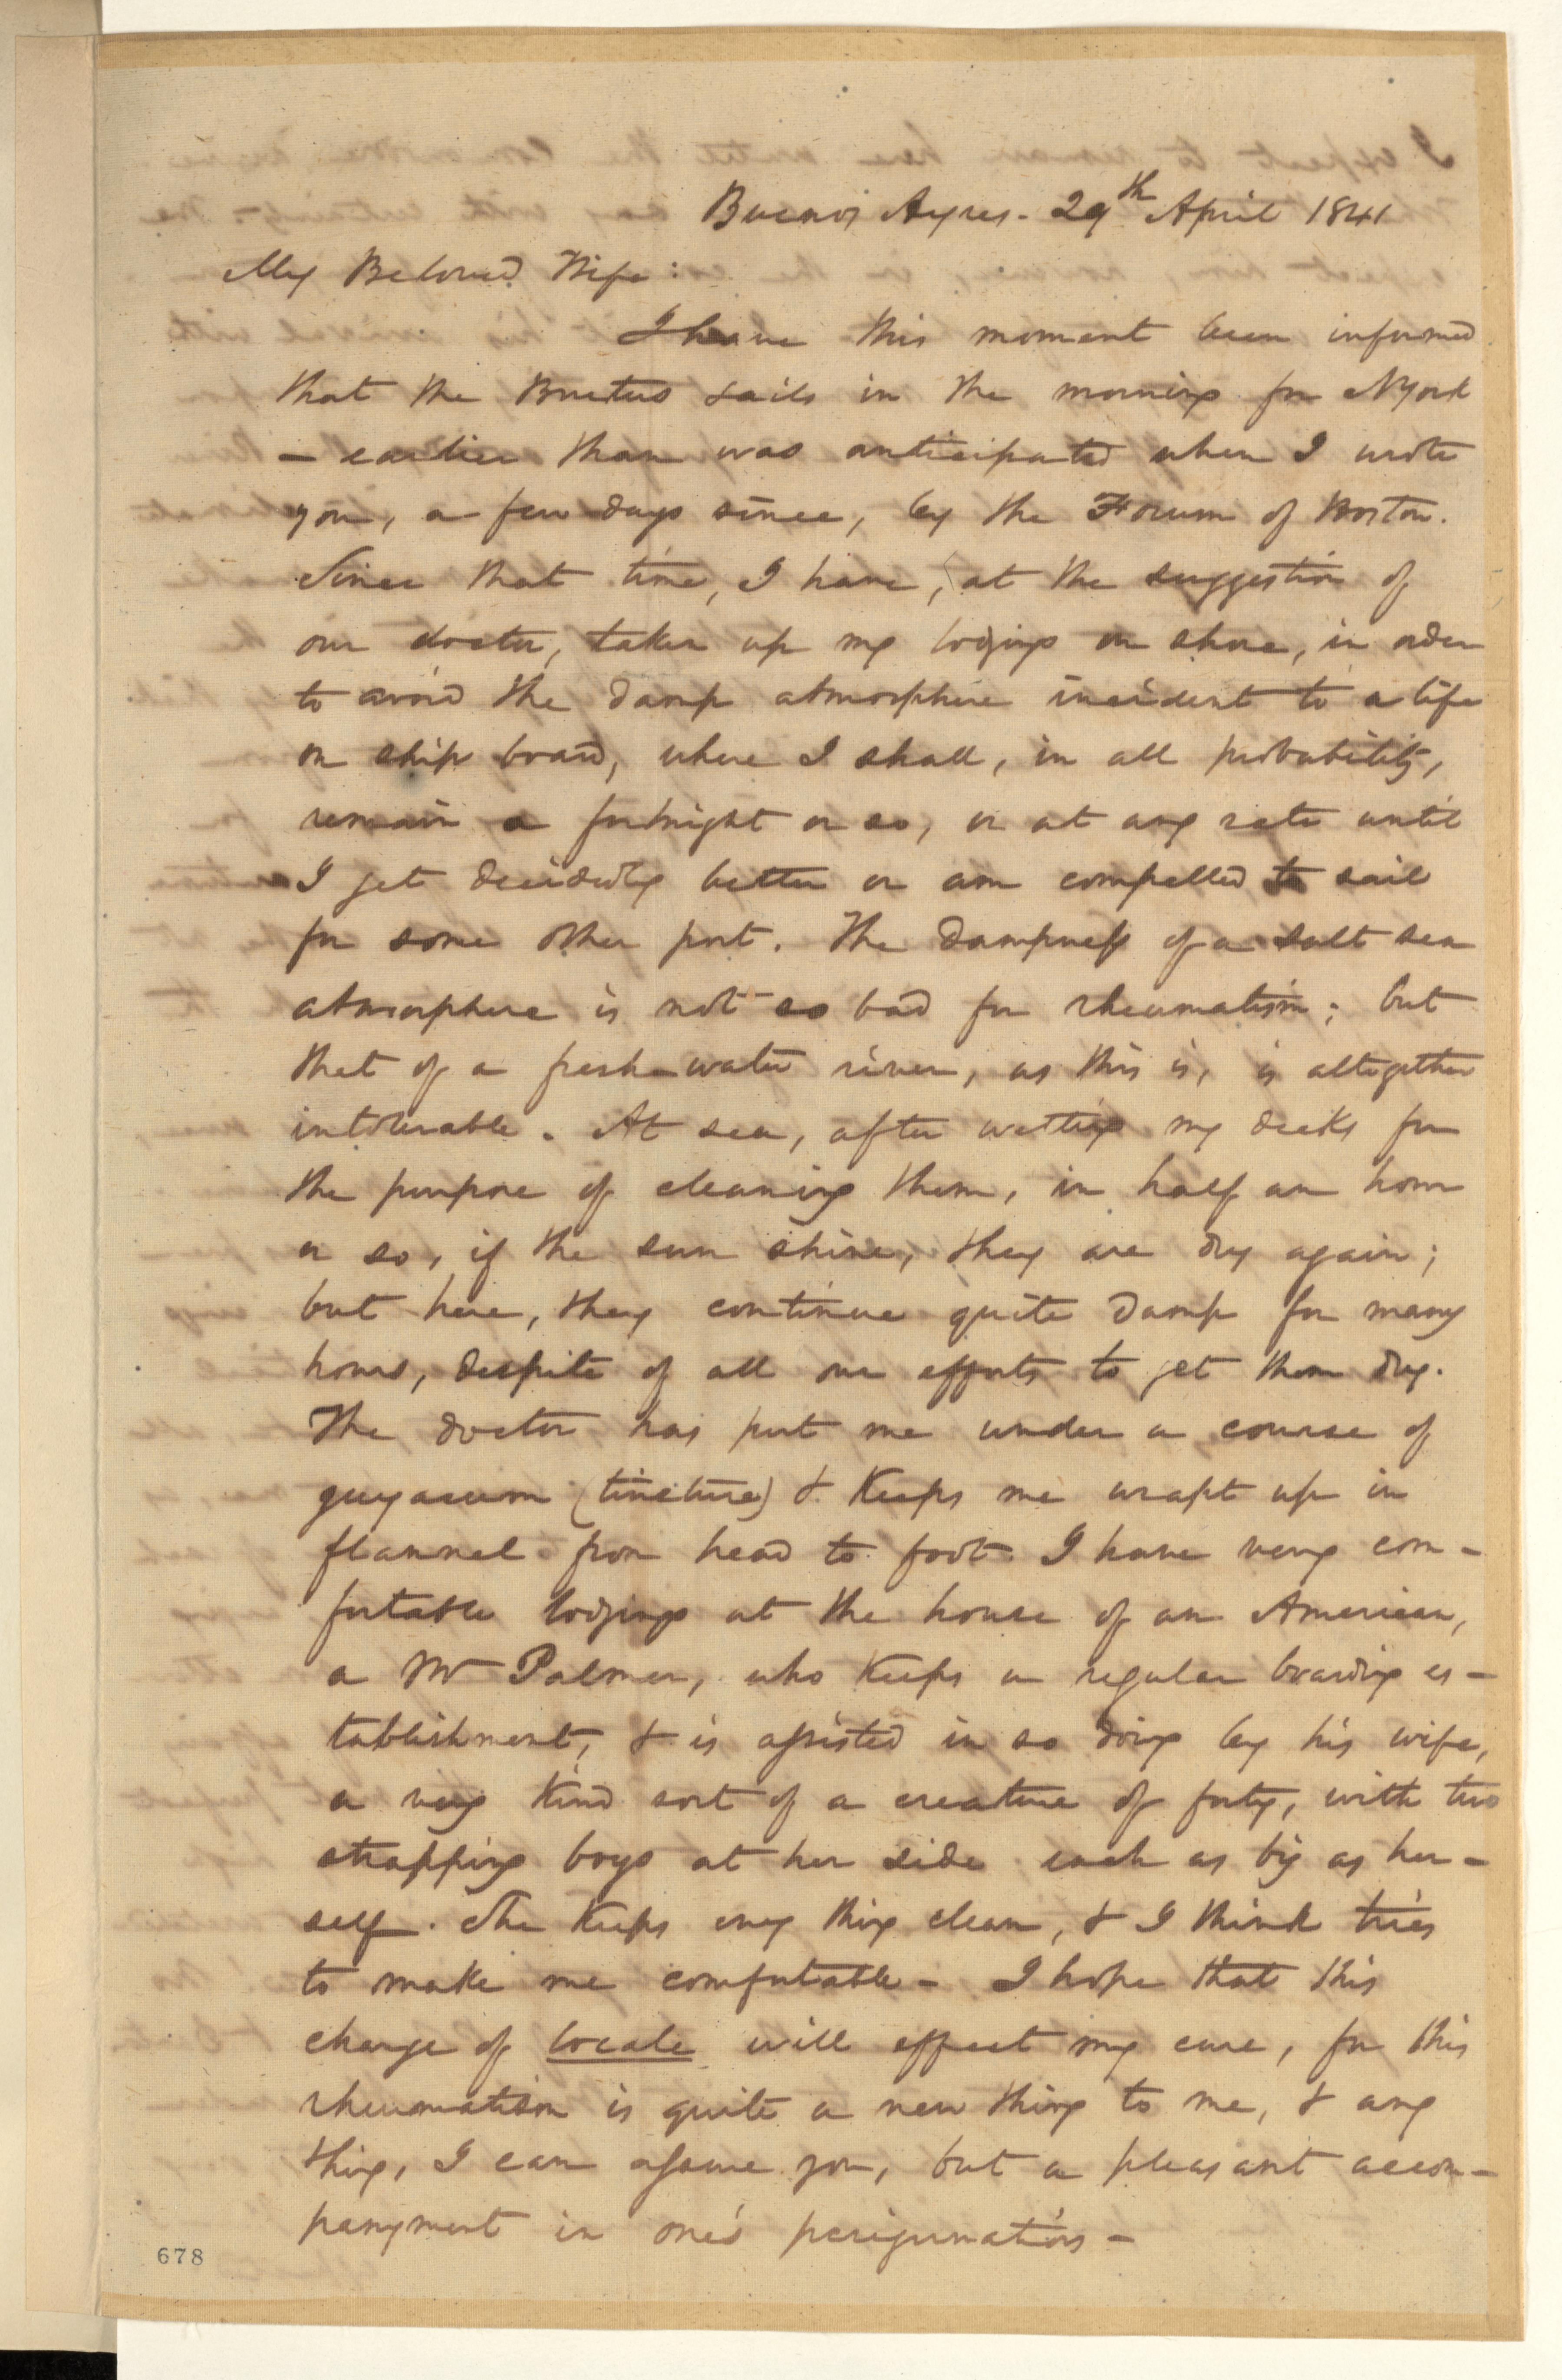 Buenos Ayres - 29th April 1841
My Beloved Wife:
I have this moment been informed
that the Brutus sails in the morning for NYork
- earlier than was anticipated when I wrote
you, a few days since, by the Forum of Boston.
Since that time, I have, at the suggestion of
our doctor, taken up my lodgings on shore, in order
to avoid the damp atmosphere incident to a life
on ship board, where I shall, in all probability,
remain a fortnight or so, or at any rate until
I get decidedly better or am compelled to sail
for some other port. The dampness of a salt sea
atmosphere is not so bad for rheumatism; but
that of a fresh-water river, as this is, is altogether
intolerable. At sea, after wetting my decks for
the purpose of cleaning them, in half an hour
or so, if the sun shine, they are dry again;
but here, they continue quite damp for many
hours, despite of all our efforts to get them dry.
The doctor has put me under a course of
guyacum (tincture) & keeps me wrapt up in
flannel from head to foot. I have very com-
fortable lodgings at the house of an American,
a Mr Palmer, who keeps a regular boarding es-
tablishment, & is assisted in so doing by his wife,
a very kind sort of a creature of forty, with two
strapping boys at her side each as big as her-
self. She keeps every thing clean, & I think tries
to make me comfortable - I hope that this
change of locale will effect my cure, for this
rheumatism is quite a new thing to me, & any
thing, I can assure you, but a pleasant accom-
panyment in one's perigrinations -
678